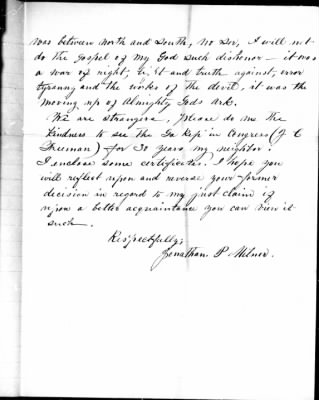 was between North and South, No Sir, I will not
do the gospel of my God such dishonor — it was
a war of right, light and truth against, error
tyranny and the works of the devil, it was the
moving up of Almighty Gods Ark.
We are strangers, Please do me the
kindness to see the Ga Rep in Congress (J C
Freeman) for 30 years my neighbor.
I enclose some certificates. I hope you
will reflect upon and reverse your former
decision in regard to my just claim if
upon a better acquaintance you can view it
such.
Respectfully,
Jonathan. P Milner.